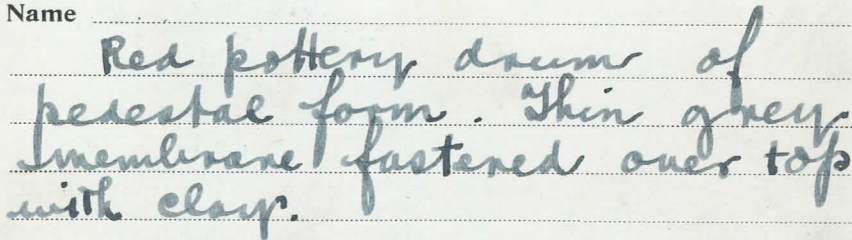 Name
Red pottery drum of
pedestal form. Thin grey
membrane fastened over top
with clay.